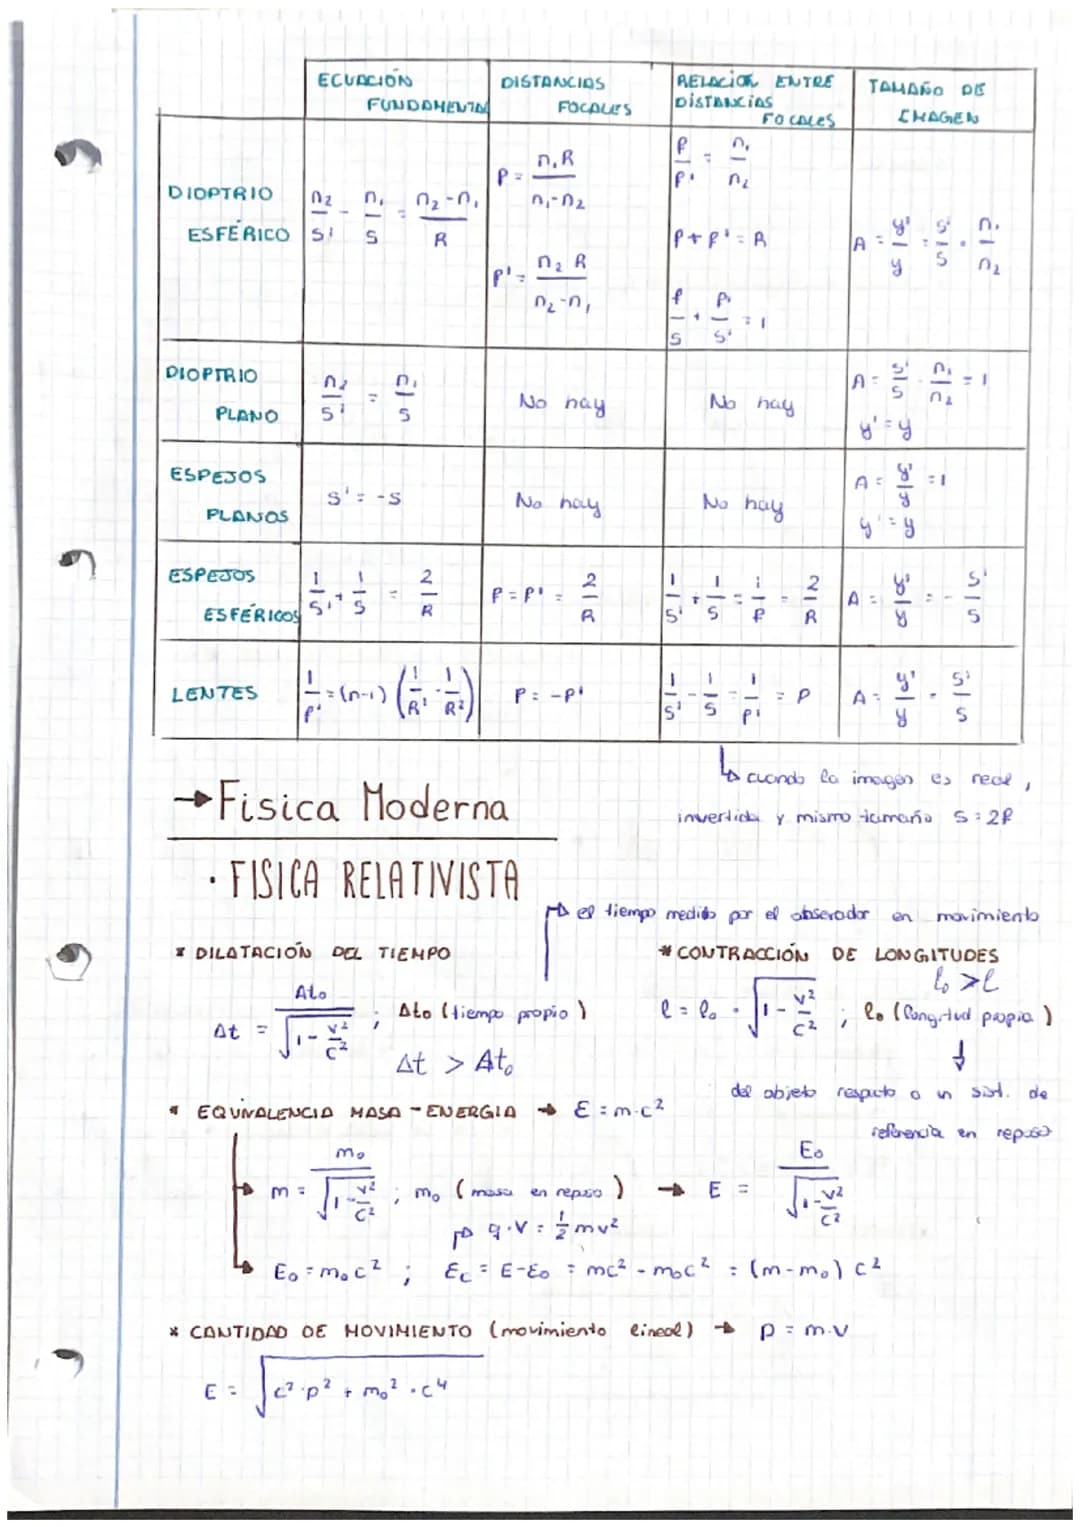 ECUACIÓN FUNDAMENTAL | DISTANCIAS FOCALES | RELACIÓN ENTRE DISTANCIAS FOCALES | TAMAÑO DE IMAGEN
DIOPTRIO ESFÉRICO | n₂/s' - n₁/s = (n₂-n₁)/R | f = n₁R/(n₁-n₂) f' = n₂R/(n₂-n₁) | f/f' = n₁/n₂ f+f' = R f/s + f'/s' = 1 | A = y'/y = s'/s · n₁/n₂
DIOPTRIO PLANO | n₂/s' = n₁/s | No hay | No hay | A = s'/s · n₁/n₂ = 1 y' = y
ESPEJOS PLANOS | s' = -s | No hay | No hay | A = y'/y = 1 y' = y
ESPEJOS ESFÉRICOS | 1/s' + 1/s = 2/R | f = f' = 2/R | 1/s' + 1/s = 1/f = 2/R | A = y'/y = - s'/s
LENTES | 1/f' = (n-1) (1/R₁ - 1/R₂) | f = -f' | 1/s' - 1/s = 1/f' = P | A = y'/y = s'/s
↳ cuando la imagen es real,
invertida y mismo tamaño s = 2f
→ Fisica Moderna
· FISICA RELATIVISTA
↱ el tiempo medido por el observador en movimiento
* DILATACIÓN DEL TIEMPO
Δt = Δt₀/√(1 - v²/c²) ; Δt₀ (tiempo propio)
Δt > Δt₀
* CONTRACCIÓN DE LONGITUDES
l₀ > l
l = l₀ · √(1 - v²/c²) ; l₀ (longitud propia)
↓
del objeto respecto a un sist. de
referencia en reposo
* EQUIVALENCIA MASA - ENERGIA → E = m·c²
→ m = m₀/√(1 - v²/c²) ; m₀ (masa en reposo) → E = E₀/√(1 - v²/c²)
↱ q·V = ½ mv²
↳ E₀ = m₀c² ; Ec = E-E₀ = mc² - m₀c² = (m-m₀) c²
* CANTIDAD DE MOVIMIENTO (movimiento lineal) → p = m·v
E = √(c²·p² + m₀²·c⁴)